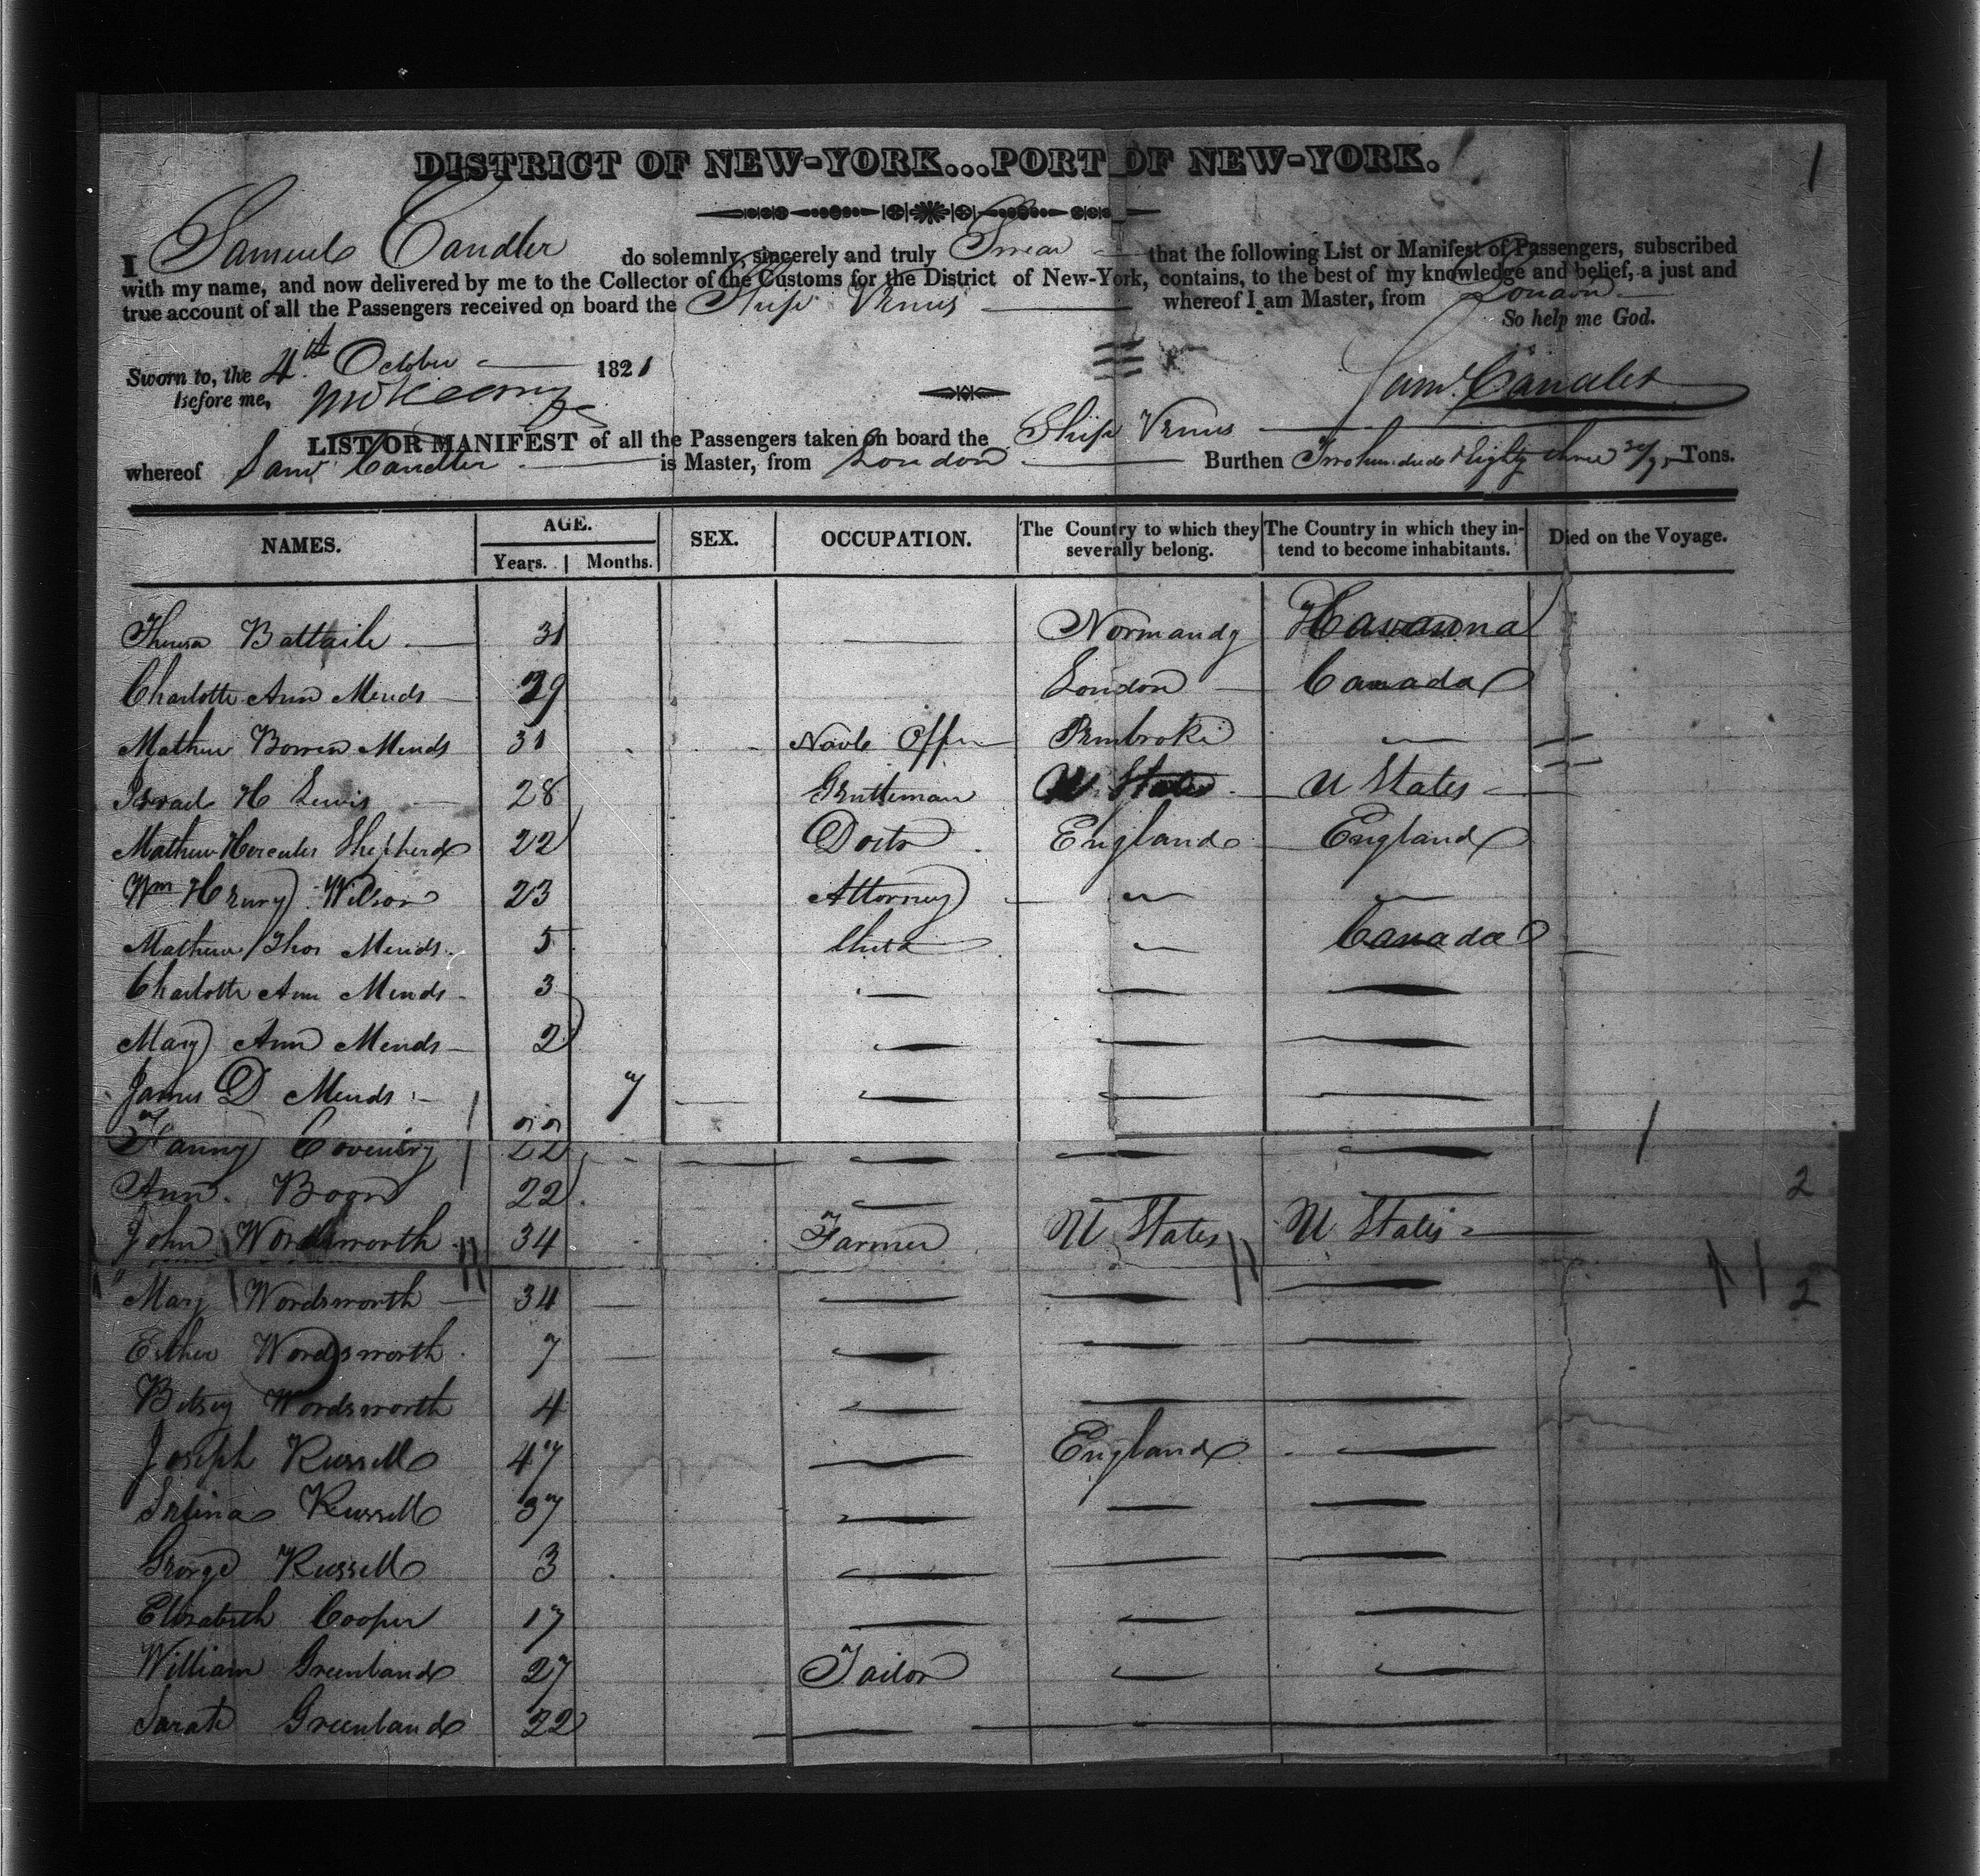 1
DISTRICT OF NEW-YORK...PORT OF NEW-YORK.
I Samuel Candler do solemnly, sincerely and truly Swear that the following List or Manifest of Passengers, subscribed
with my name, and now delivered by me to the Collector of the Customs for the District of New-York, contains, to the best of my knowledge and belief, a just and
true account of all the Passengers received on board the Ship Venus whereof I am Master, from London
So help me God.
Sworn to, the 4th October 1821
Before me,
Saml. Candler
LIST OR MANIFEST of all the Passengers taken on board the Ship Venus
whereof Saml Candler is Master, from London Burthen Two hundred & Eighty three Tons.
NAMES. AGE. Years. Months. SEX. OCCUPATION. The Country to which they severally belong. The Country in which they intend to become inhabitants. Died on the Voyage.
Battaile 31 — Normandy Havanna
Charlotte Ann Mends 29 London Canada
Mathew Bowen Mends 31 Pembroke —
Israel H Lewis 28 Gentleman U States U States
Mathew Hercules Shepherd 22 Doctr England England
Wm Henry Wilson 23 Attorney — —
Mathew Thos Mends 5 Child — Canada
Charlotte Ann Mends 3 — — —
Mary Ann Mends 2 — — —
James D Mends 7 — — — —
Fanny Coventry 22 — — — —
Ann Boon 22 — — — 2
John Wordsworth 34 Farmer U States U States
Mary Wordsworth 34 — — — 2
Esther Wordsworth 7 — — —
Betsey Wordsworth 4 — — —
Joseph Russell 47 — England —
Russell 37 — — —
George Russell 3 — — —
Elizabeth Cooper 17 — — —
William Greenland 27 Tailor — —
Sarah Greenland 22 — — —